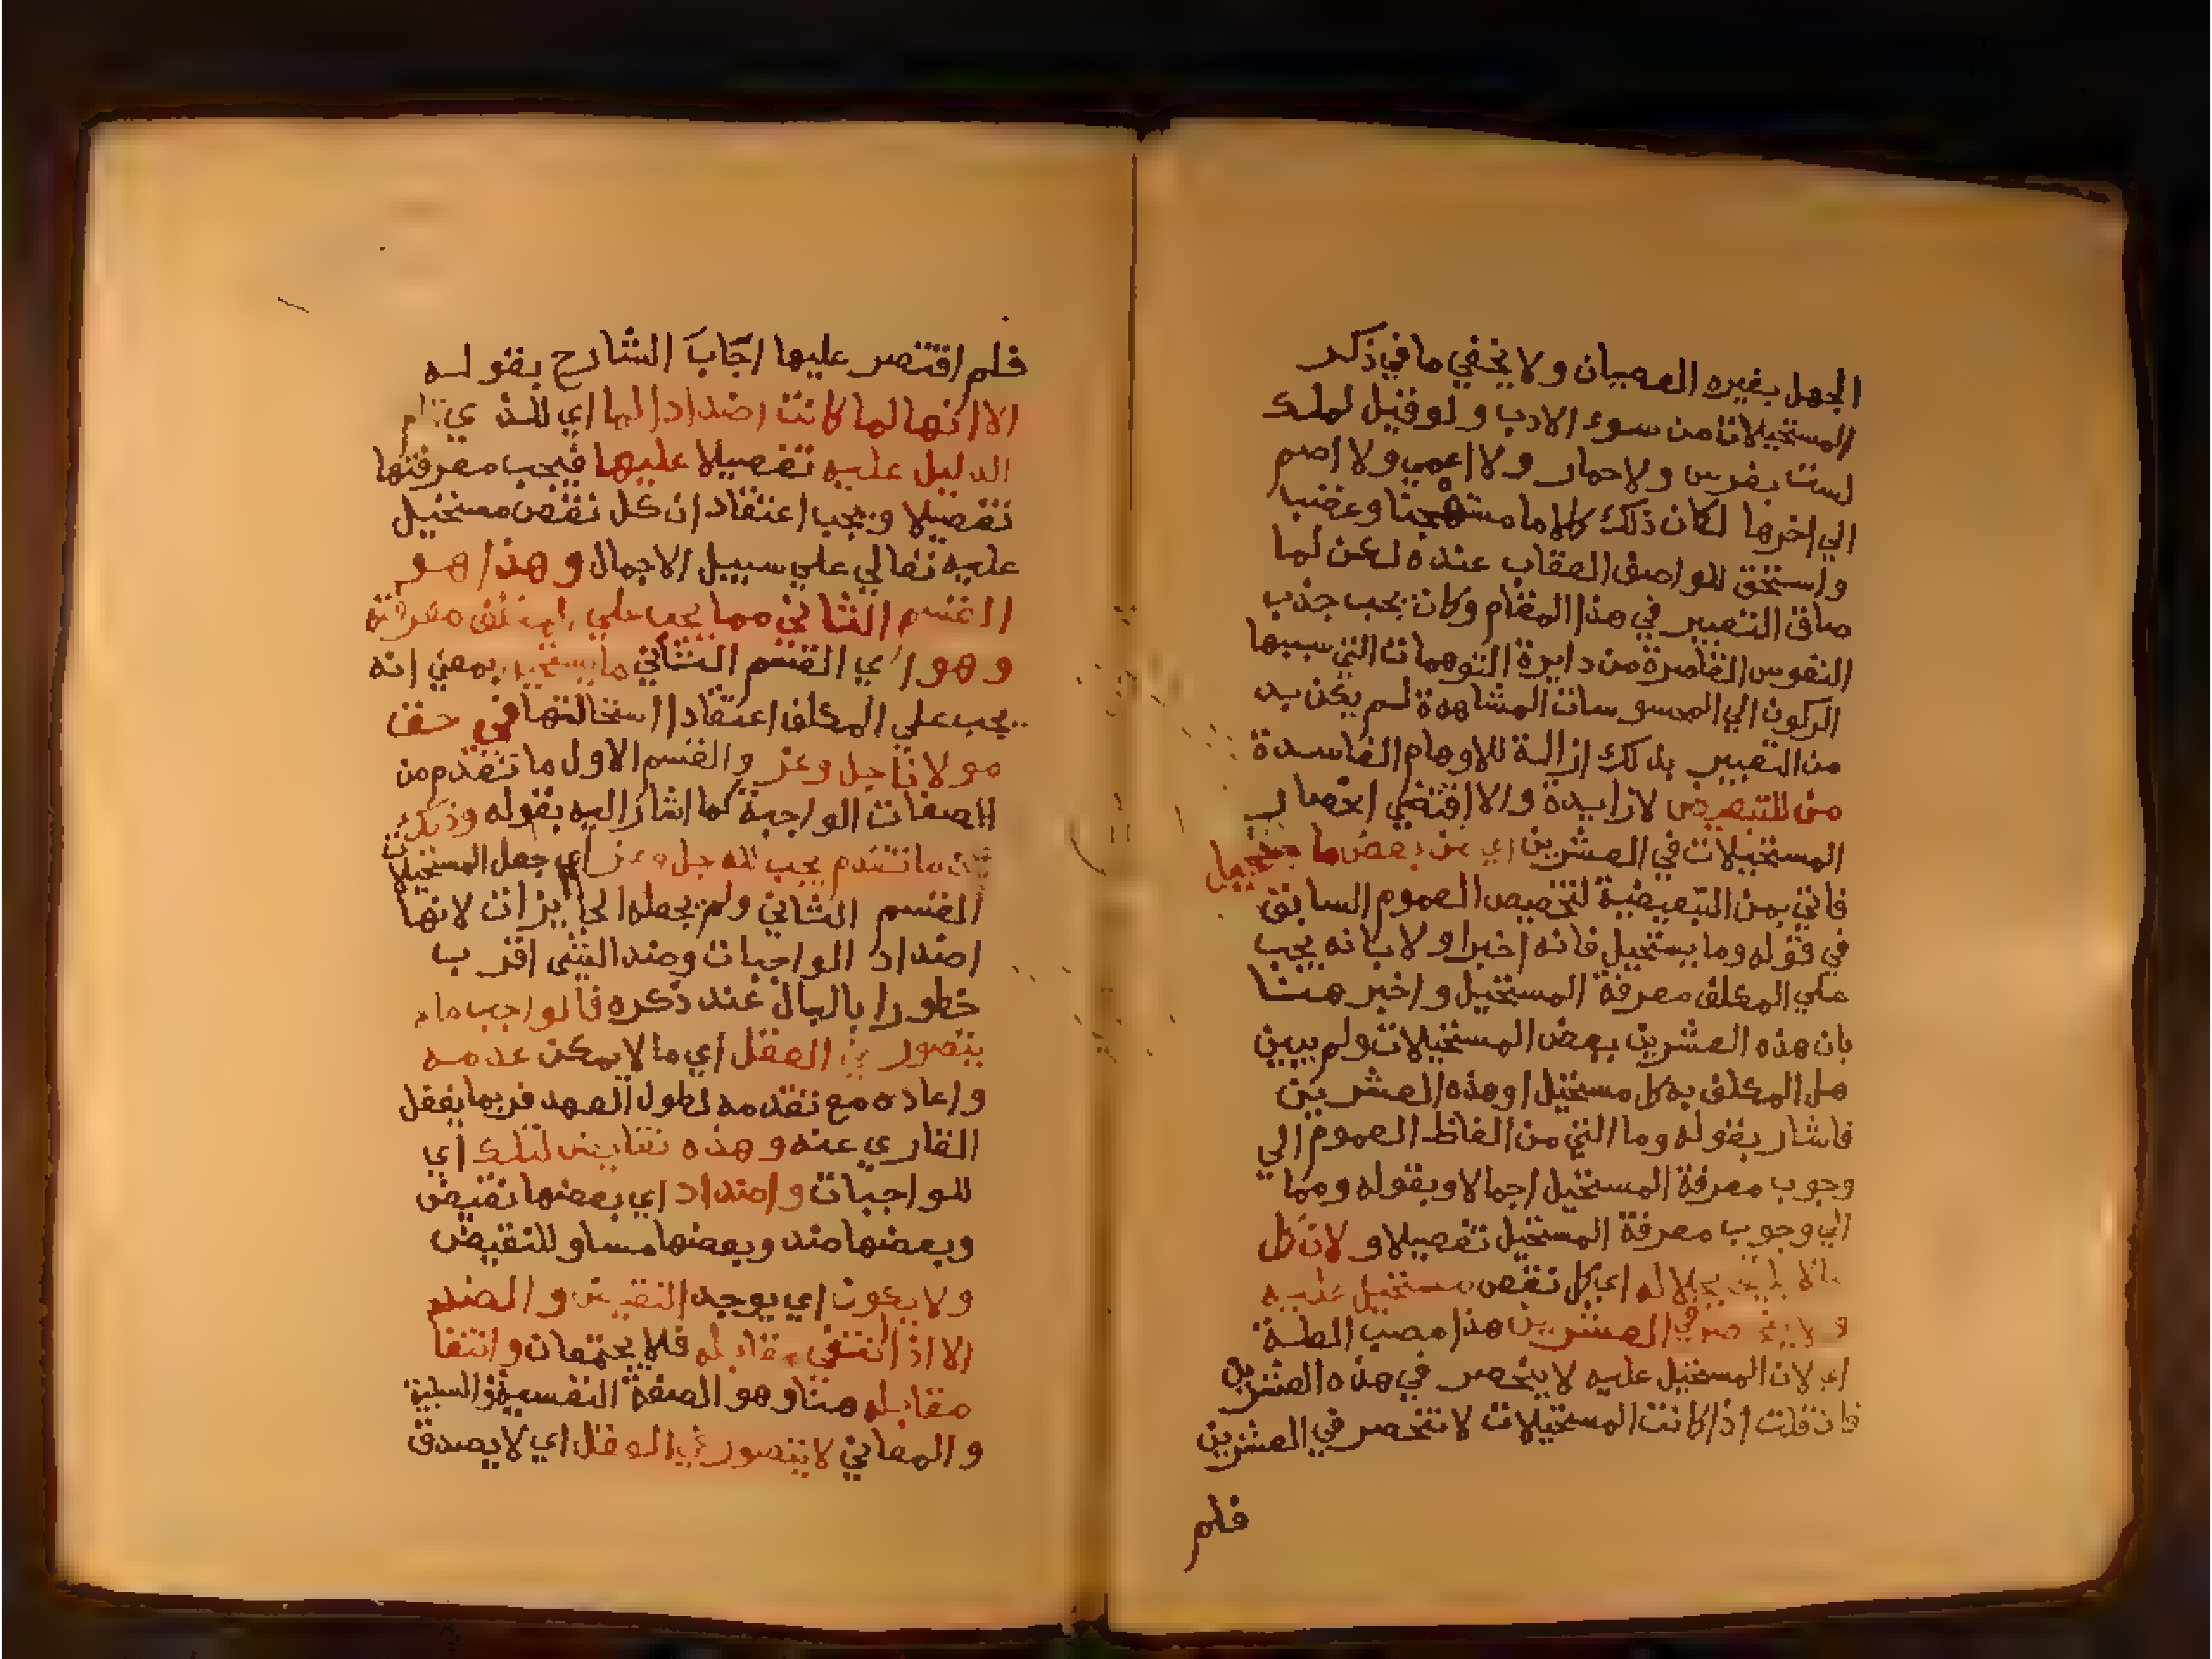 الجهل بغيره العصيان ولا يخفي ما في ذكر
المستحيلات من سوء الادب ولو قيل لملك
لست بفرس ولا حمار ولا اعمي ولا اصم
الي اخرها لكان ذلك كلاما مستهجنا وغضب
واستحق للواصف العقاب عنده لكن لما
ضاق التعبير في هذا المقام وكان يجب جذب
النفوس القاصرة من دايرة التوهمات التي سببها
الركون الي المحسوسات المشاهدة لم يكن بد
من التعبير بذلك ازالة للاوهام الفاسدة
من للتبعيض لا زايدة والا اقتضي انحصار
المستحيلات في العشرين اي من بعض ما يستحيل
فاتي بمن التبعيضية لتخصيص العموم السابق
في قوله وما يستحيل فانه اخبر اولا بانه يجب
علي المكلف معرفة المستحيل واخبر هنا
بان هذه العشرين بعض المستحيلات ولم يبين
هل المكلف به كل مستحيل او هذه العشرين
فاشار بقوله وما التي من الفاظ العموم الي
وجوب معرفة المستحيل اجمالا وبقوله ومما
الي وجوب معرفة المستحيل تفصيلا ولان كل
مالا يليق بجلاله اي كل نقص مستحيل عليه
ولا ينحصر في العشرين هذا مصب العلة
اي لان المستحيل عليه لا ينحصر في هذه العشرين
فان قلت اذا كانت المستحيلات لا تنحصر في العشرين
فلم
فلم اقتصر عليها اجاب الشارح بقوله
الا انها لما كانت اضدادا لما اي للذي قام
الدليل عليه تفصيلا عليها فيجب معرفتها
تفصيلا ويجب اعتقاد ان كل نقص مستحيل
عليه تعالي علي سبيل الاجمال وهذا هو
القسم الثاني مما يجب علي معرفته
وهو اي القسم الثاني ما يستحيل بمعني انه
يجب علي المكلف اعتقاد استحالتها في حق
مولانا جل وعز والقسم الاول ما تقدم من
الصفات الواجبة كما اشار اليه بقوله وذلك
ان ما تقدم يجب لله جل وعز اي جعل المستحيلات
القسم الثاني ولم يجعله الجايزات لانها
اضداد الواجبات وضد الشي اقرب
خطورا بالبال عند ذكره فالواجب ما لا
يتصور في العقل اي ما لا يمكن عدمه
واعاده مع تقدمه لطول العهد فربما يغفل
القاري عنه وهذه نقايض لتلك اي
للواجبات واضداد اي بعضها نقيض
وبعضها ضد وبعضها مساو للنقيض
ولا يكون اي يوجد النقيض والضد
الا اذا انتفي مقابله فلا يجتمعان وانتفا
مقابله هنا وهو الصفة النفسية والسلبية
والمعاني لا يتصور في العقل اي لا يصدق